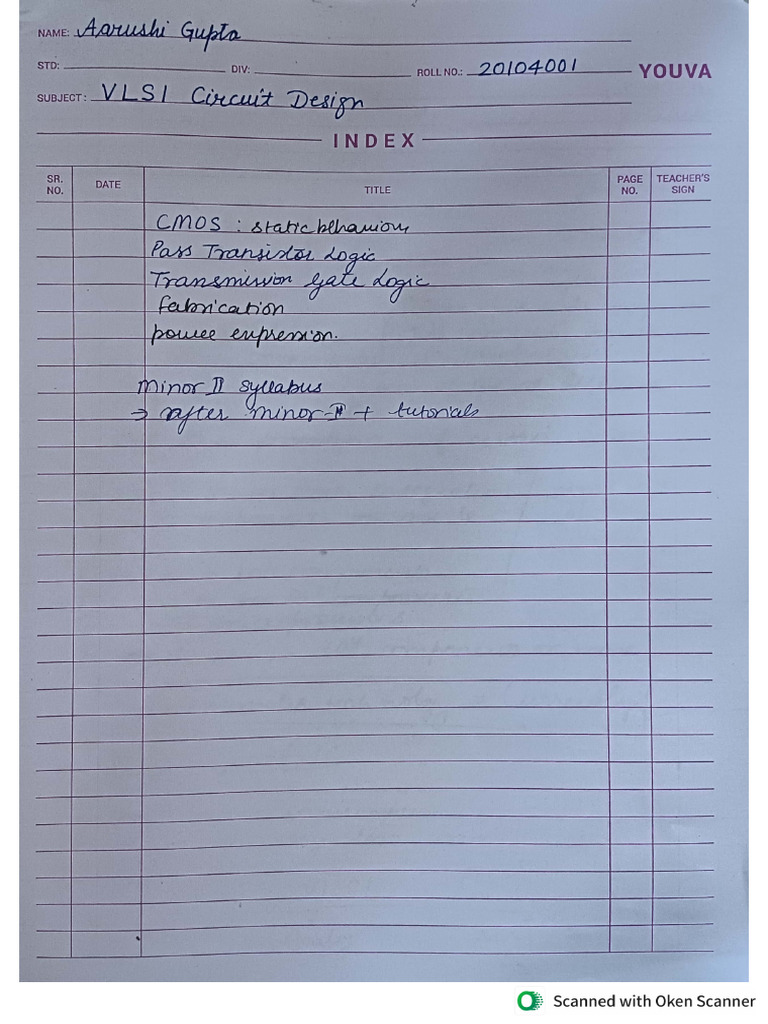 NAME: Aarushi Gupta
STD: DIV: ROLL NO.: 20104001 YOUVA
SUBJECT: VLSI Circuit Design
INDEX
SR. NO. DATE TITLE PAGE NO. TEACHER'S SIGN
CMOS : static behaviour
Pass Transistor Logic
Transmission Gate Logic
fabrication
power expression.
Minor II syllabus
→ after minor-I + tutorials
Scanned with Oken Scanner